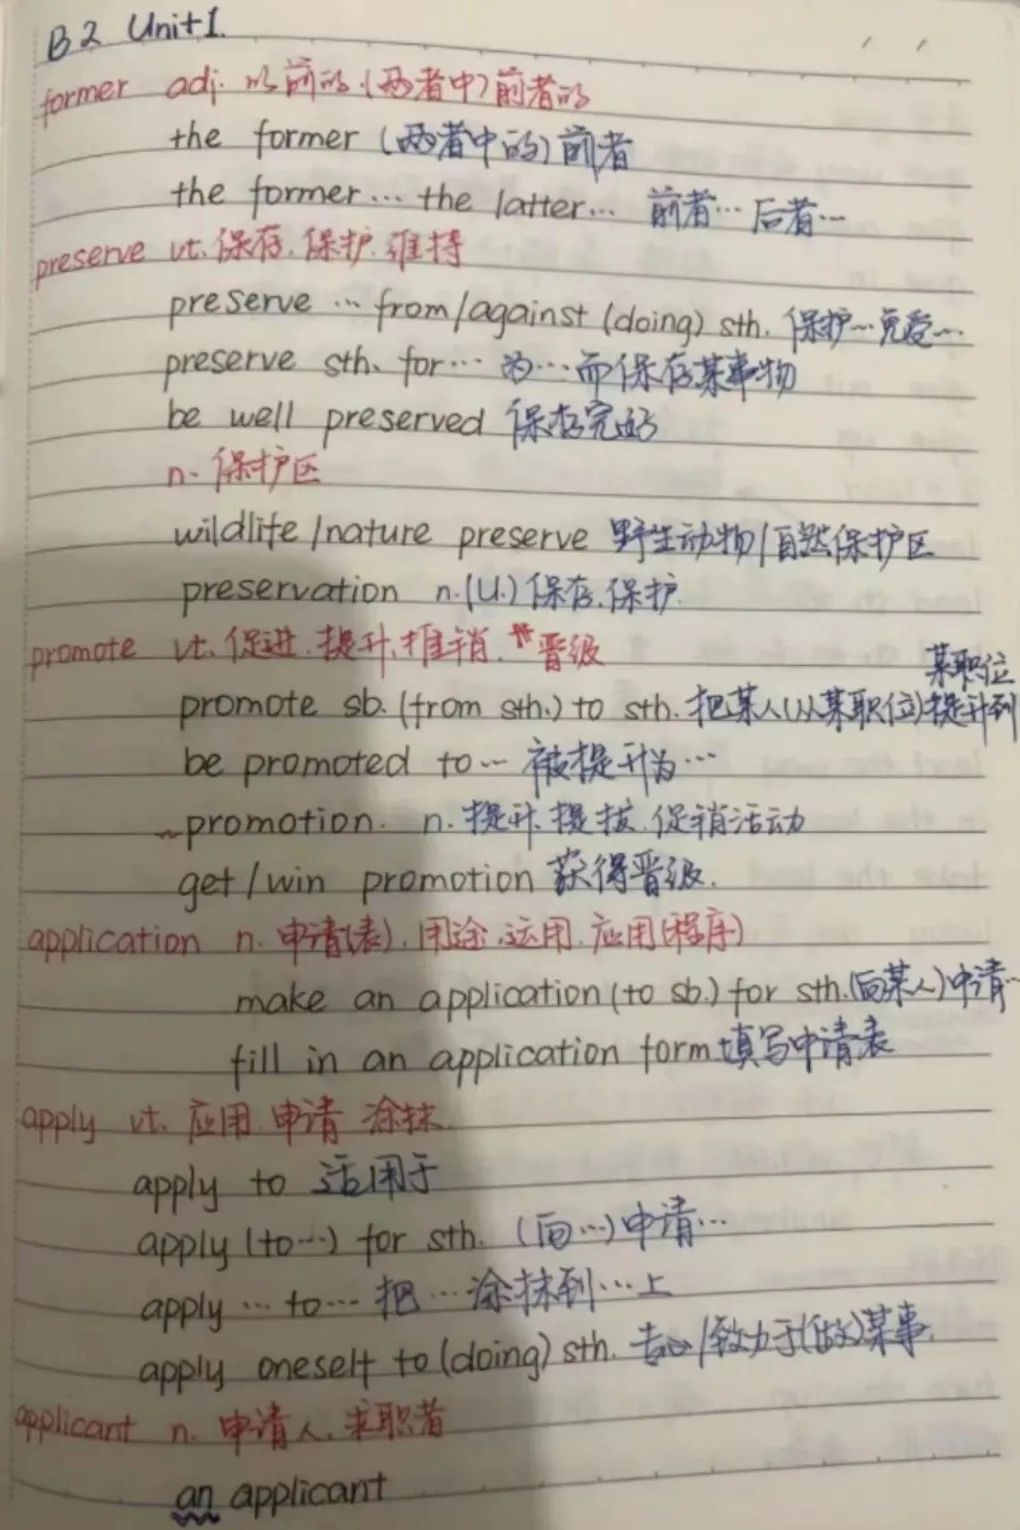 B2 Unit1.
former adj. 以前的.(两者中)前者的
the former (两者中的)前者
the former… the latter… 前者…后者…
preserve vt. 保存.保护.维持
preserve … from/against (doing) sth. 保护…免受…
preserve sth. for… 为…而保存某事物
be well preserved 保存完好
n. 保护区
wildlife/nature preserve 野生动物/自然保护区
preservation n.(U.) 保存.保护
promote vt. 促进.提升.推销. 晋级
promote sb. (from sth.) to sth. 把某人(从某职位)提升到某职位
be promoted to… 被提升为…
promotion. n. 提升.提拔.促销活动
get/win promotion 获得晋级.
application n. 申请(表).用途.运用.应用(程序)
make an application (to sb.) for sth.(向某人)申请…
fill in an application form 填写申请表
apply vt. 应用.申请 涂抹.
apply to 适用于
apply (to…) for sth. (向…)申请…
apply … to… 把…涂抹到…上
apply oneself to (doing) sth. 专心/致力于(做)某事.
applicant n. 申请人.求职者
an applicant